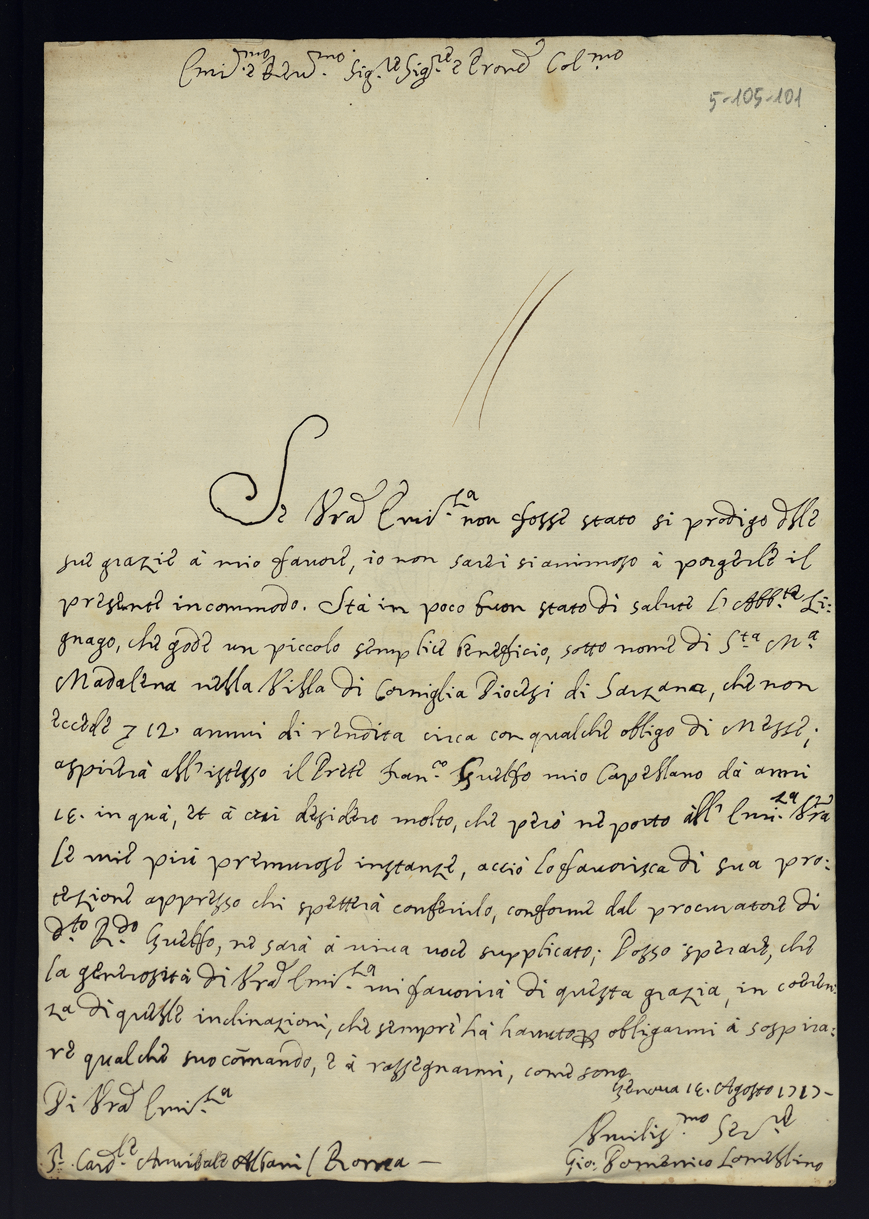 Em.mo e Rev.mo Sig.re Sig.re e Pron. Col.mo
5-105-101
Se Vra Emin.za non fosse stato si prodigo delle
sue grazie à mio favore, io non sarei si animoso à porgerle il
presente incommodo. Stà in poco buon stato di salute l'Abb.te Li:
gnago, che gode un piccolo semplice beneficio, sotto nome di S.ta M.a
Madalena nella Villa di Corniglia Diocesi di Sarzana, che non
eccede 12. annui di rendita circa con qualche obligo di Messe;
aspira all'istesso il Prete Fran.co Guelfo mio Capellano dà anni
in quà, et à cui desidero molto, che però ne porto all'Emin.za Vra
le mie più premurose instanze, acciò lo favorisca di sua pro:
tezione appresso chi spetterà conferirlo, conforme dal procuratore di
d.to R.do Guelfo, ne sarà à viva voce supplicato; Posso sperare, che
la generosità di Vra Emin.za mi favorirà di questa grazia, in coeren:
za di quelle inclinazioni, che sempre hà havuto obligarmi à sospira:
re qualche suo comando, e à rassegnarmi, come sono
Di Vra Emin.za
Genova Agosto 1717-
Umilis.mo Ser.re
S.r Card.le Annibale Albani / Roma —
Gio. Domenico Lomellino